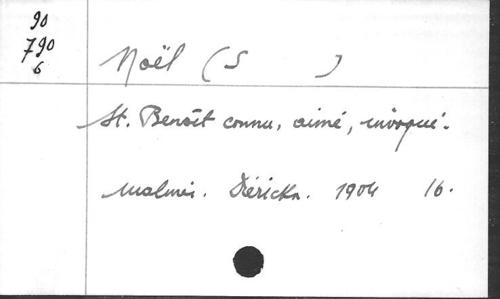 90
790
6
Noël (S )
St. Benoît connu, aimé, invoqué.
Malines. Diericks. 1904 16.